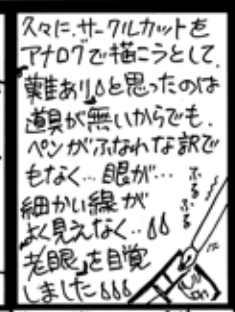 久々に、サークルカットを
アナログで描こうとして、
難あり💧💧と思ったのは
道具が無いからでも、
ペンがふなれな訳で
もなく…眼が…
細かい線が
よく見えなく‥💧💧
「老眼」を自覚
しました💧💧💧
ふるふる
ふるふる